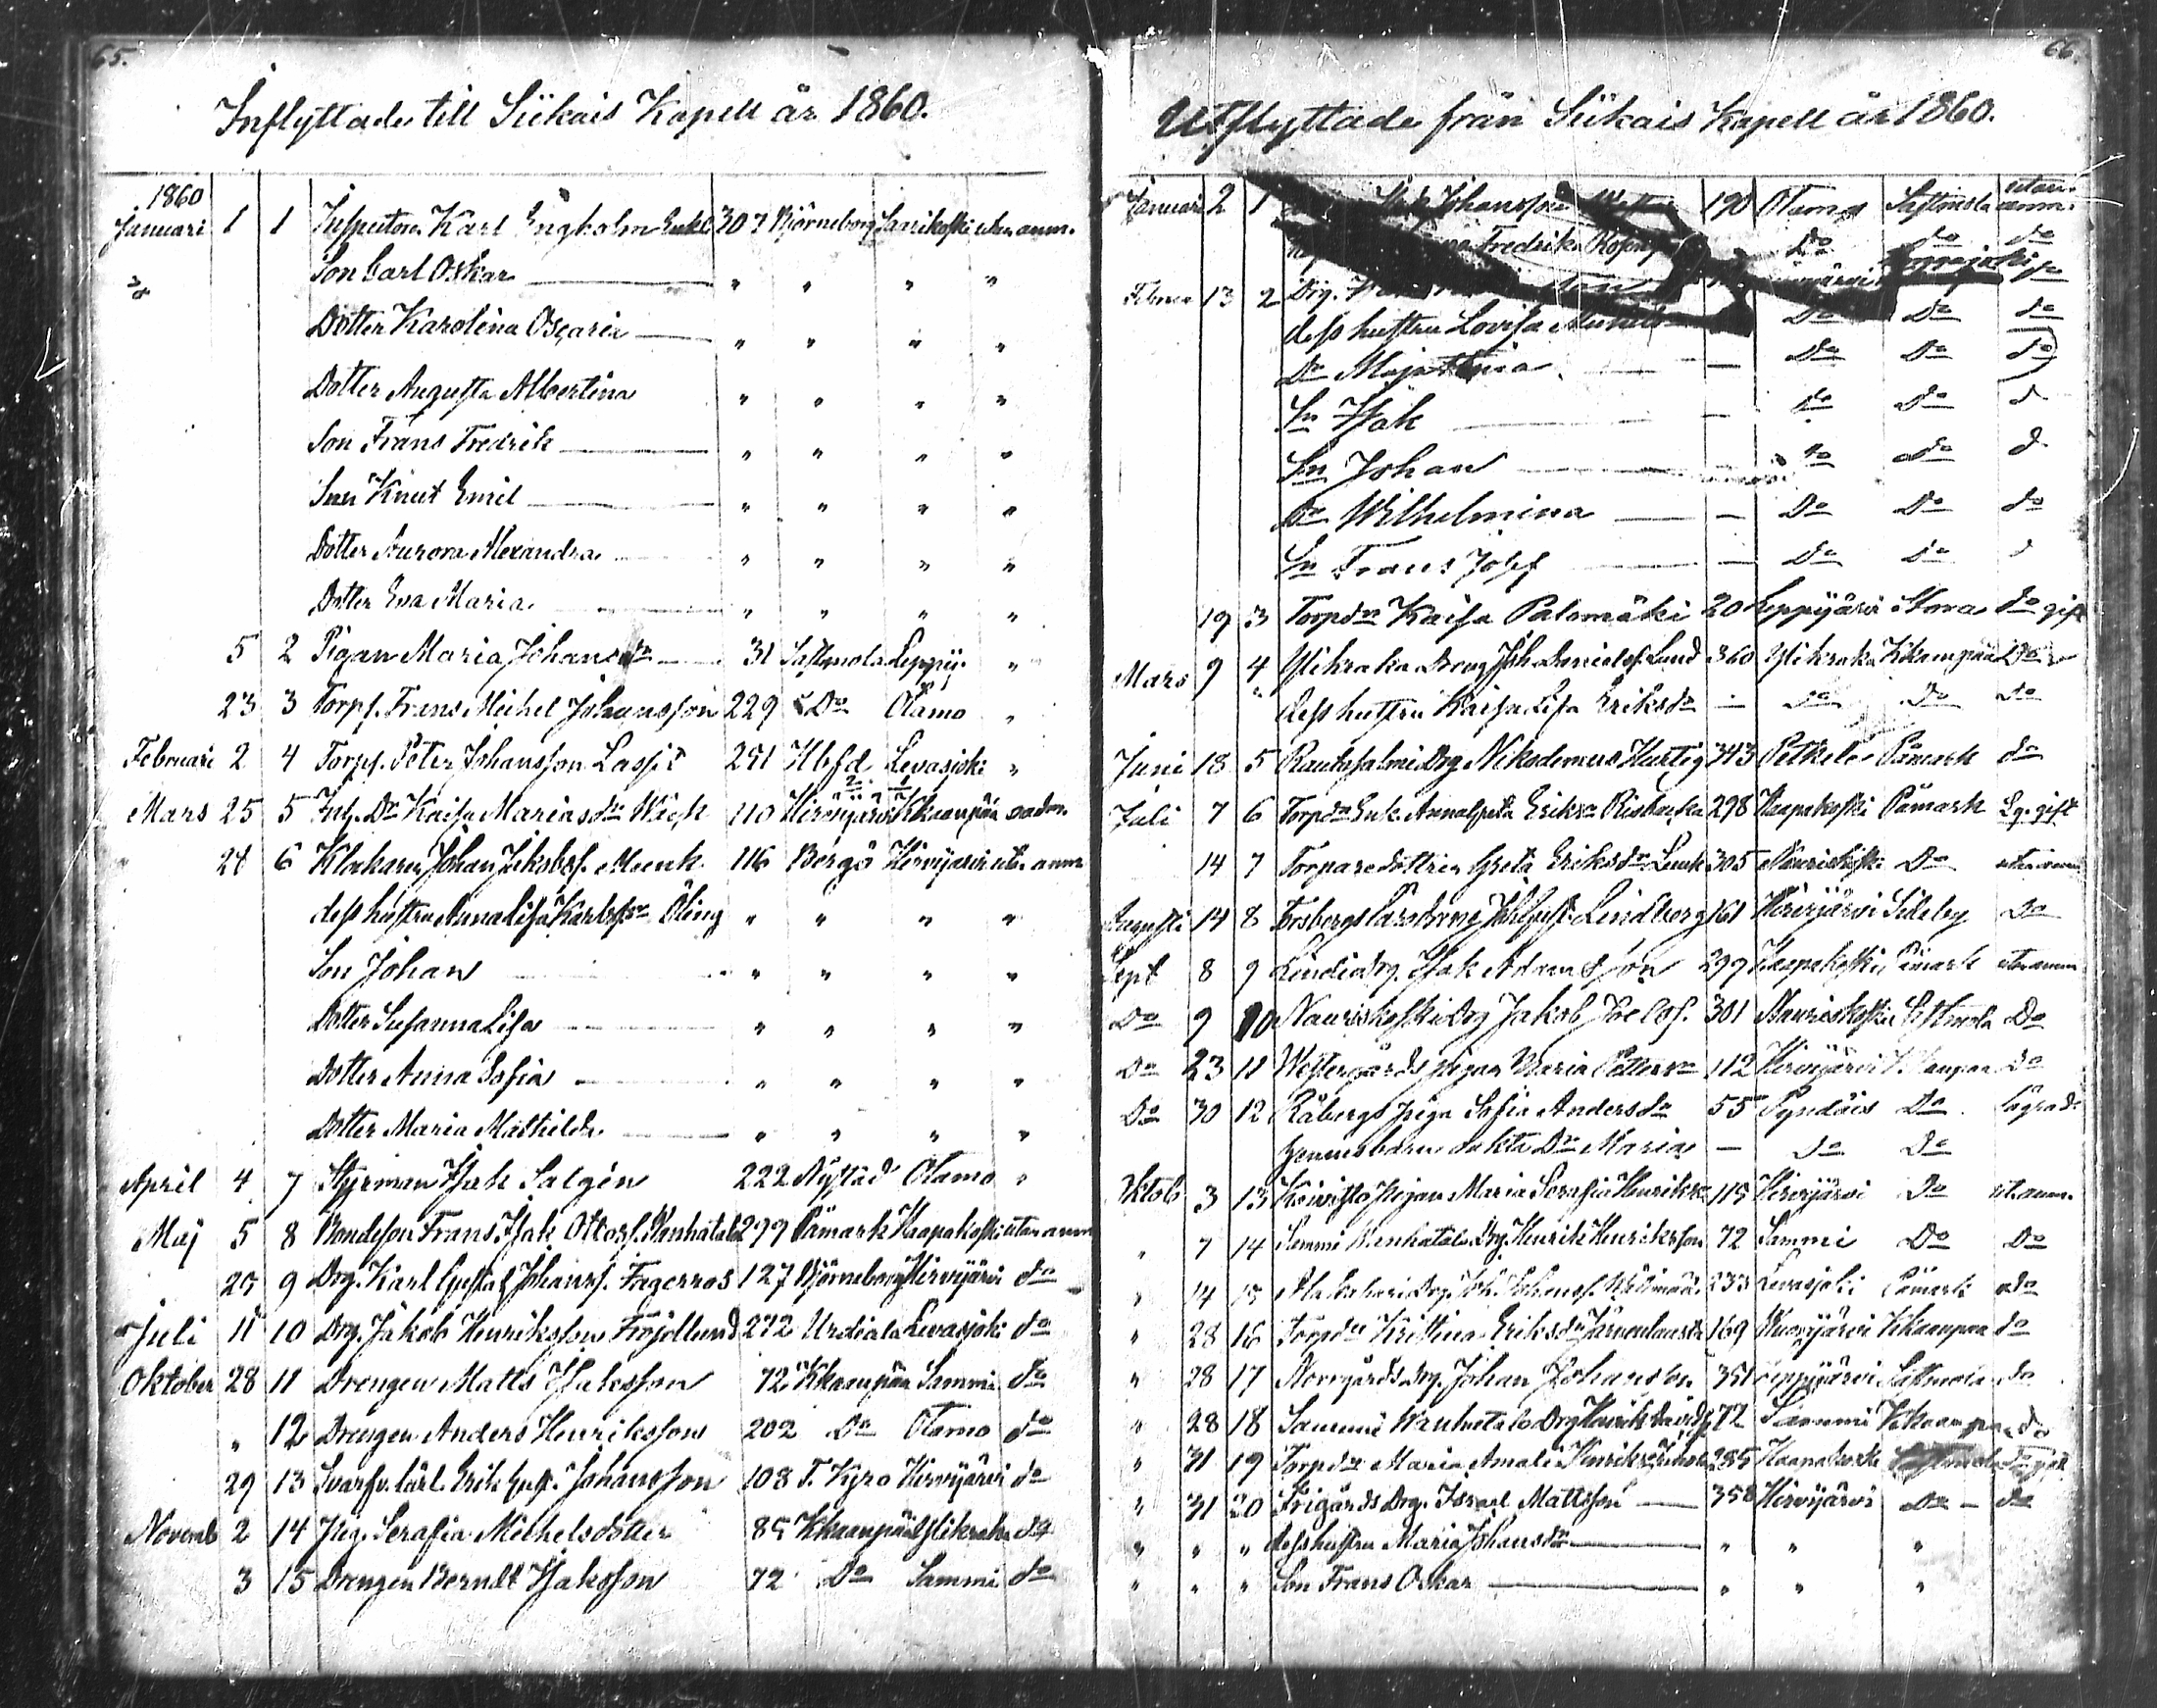 65.
Inflyttade till Siikais Kapell år 1860.
1860
Januari 1 1 Inspectoren Karl Engholm Enkl 307 Björneborg Sanikoski utan anm.
Son Carl Oskar " " " "
Dotter Karolina Oscaria " " " "
Dotter Augusta Albertina " " " "
Son Frans Fredrik " " " "
Son Knut Emil " " " "
Dotter Aurora Alexandra " " " "
Dotter Eva Maria " " " "
5 2 Pigan Maria Johansdr 31 Sastmola Leppij. "
23 3 Torps. Frans Michel Johansson 229 Do Otamo "
Februari 2 4 Torps. Peter Johansson Lassit 291 Hbfd Levasjoki "
Mars 25 5 Dr Kaisa 110 Hirvijärvi Kkaanpää
24 6 Klockaren Johan Jakobss. Munk 116 Borgå Hirvijärvi utan anm
dess hustru Anna Lisa Karlsdr Öling " " " "
Son Johan " " " "
Dotter Susanna Lisa " " " "
Dotter Anna Sofia " " " "
Dotter Maria Mathilda " " " "
April 4 7 Styrman Isak Salgén 222 Nystad Otamo "
Maj 5 8 Bondeson Frans Isak Ottoss. Wanhatalo 299 Påmark Haapakoski utan anm
20 9 Drg. Karl Gustaf Johanss. Fagerroos 127 Björneborg Hirvijärvi do
Juli 11 10 Drg. Jakob Henriksson Fröjdlund 272 Urdiala Levasjoki do
Oktober 28 11 Drengen Matts Isaksson 72 Kkaanpää Sammi do
" 12 Drengen Anders Henriksson 202 Do Otamo do
29 13 Svarfv. lärl. Erik Gust. Johansson 108 T. Kyro Hirvijärvi do
Novemb 2 14 Pig. Serafia Michelsdotter 85 Kkaanpää Ylikraka do
3 15 Drengen Berndt Isaksson 72 Do Sammi do
66.
Utflyttade från Siikais Kapell år 1860.
Januari 2 1 Johansson 190 Otamo Sastmola utan anm.
Fredrika Do do do
Februa 13 2 Drg.
dess hustru Lovisa Do Do do
Dr Maja Stina — Do Do do
Sn Isak — do Do d
Sn Johan do do d
Dr Wilhelmina — Do Do do
Sn Frans Josef — Do Do d
19 3 Torpdr Kaisa Palomäki 20 Leppijärvi Stora do gift
Mars 9 4 Ylikraka Dreng Joh Danielss. Lund 360 Ylikraka Kkaanpää Do
" dess hustru Kaisa Lisa Eriksdr — Do Do do
Juni 18 5 Drg Nikodemus Hurtig 343 Petkele Påmark do
Juli 7 6 Torpdr Enk. Annalisa Eriksdr 298 Haapakoski Påmark Lg. gift
14 7 Torparedottren Greta Eriksdr 305 Nauriskoski Do utan anm
Augusti 14 8 Lindberg 161 Hirvijärvi Sideby Do
Sept 8 9 Lindiadrg. Isak Adamsson 299 Haapakoski Påmark utan anm
Do 9 10 Nauriskoski Drg Jakob Joelss. 301 Nauriskoski Sastmola Do
Do 23 11 Westergårds pigan Maria Pettersdr 112 Hirvijärvi Kkaanpää Do
Do 30 12 Råbergs piga Sofia Andersdr 55 Pyndöis Do
hennes barn oäkta Dr Maria — Do Do
Oktob 3 13 Koivisto Pigan Maria Serafia Henriksdr 115 Hirvijärvi Do ut. anm.
" 7 14 Sammi Wanhatalo Drg. Henrik Henriksson 72 Sammi Do Do
" 14 15 Drg. Joh. Johanss. 233 Levasjoki Påmark do
" 28 16 Torpdr Kristina Eriksdr 169 Hirvijärvi Kkaanpää do
" 28 17 Norrgårds Drg. Johan Johansson 351 Leppijärvi Sastmola do
" 28 18 Sammi Wanhatalo Drg Henrik Davidss 72 Sammi Kkaanpää do
" 31 19 Torpdr Maria Amalia Henriksdr 285 Sastmola
" 31 20 Frigårds Drg. Israel Mattsson — 358 Hirvijärvi Do — do
" " " dess hustru Maria Johansdr " " "
" " " Son Frans Oskar " " "